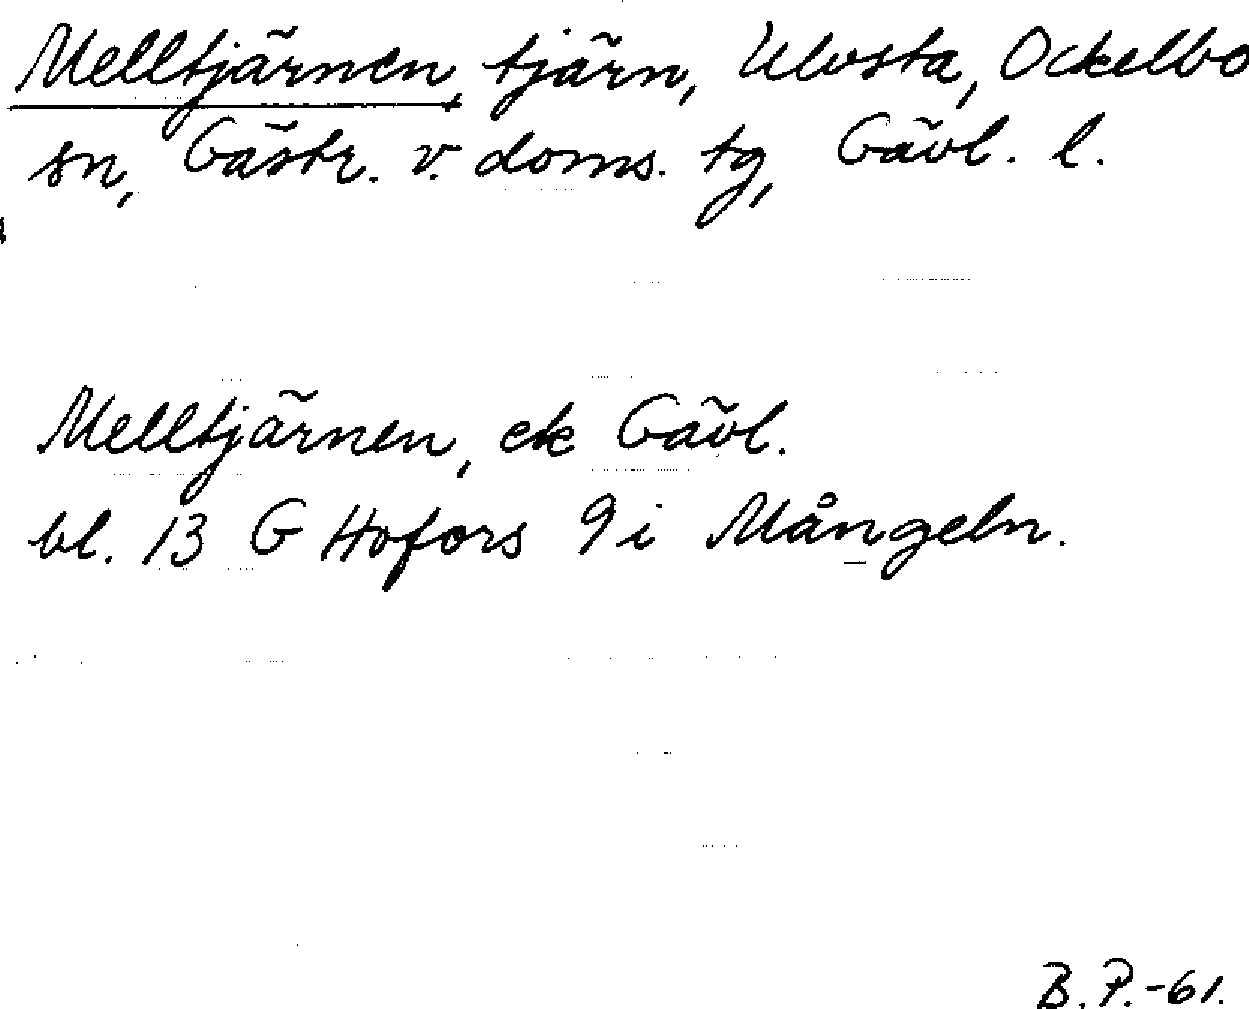 Melltjärnen, tjärn, Ulvsta, Ockelbo
sn, Gästr. v. doms. tg, Gävl. l.
Melltjärnen, ek Gävl.
bl. 13 G Hofors 9 i Mångeln.
B.P.-61.